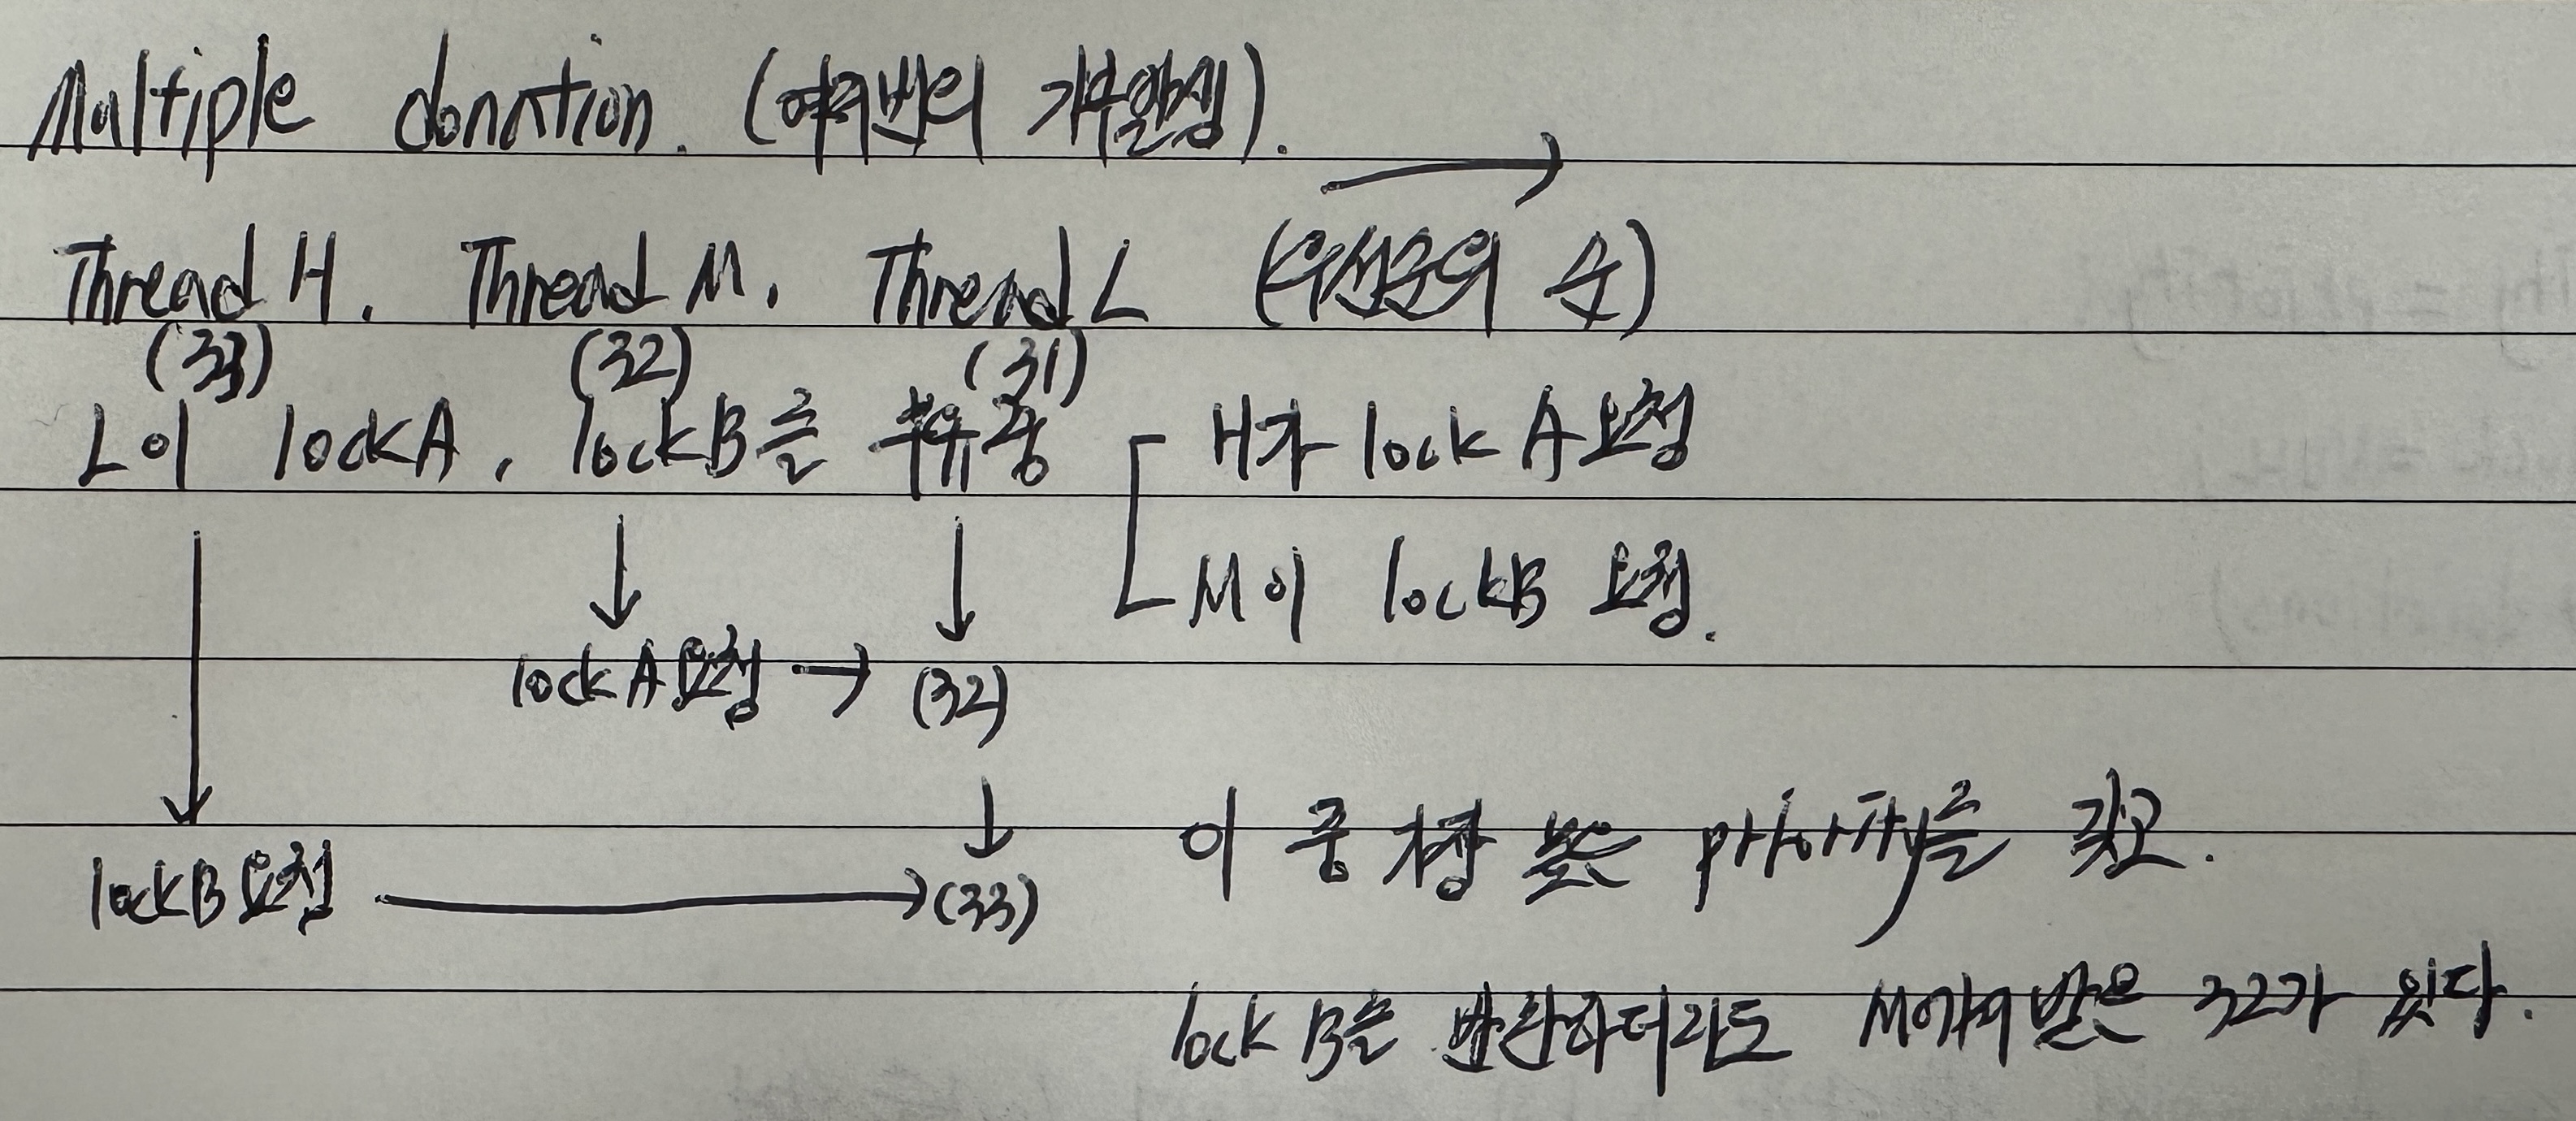 Multiple donation. (여러번의 기부발생).
Thread H. Thread M. Thread L (우선순위 순)
(33) (32) (31)
L이 lockA, lockB를 보유중
H가 lock A 요청
M이 lockB 요청.
lock A 요청 → (32)
lockB 요청 → (33)
이 중 가장 높은 priority를 갖고.
lock B를 반환하더라도 M에게 받은 32가 있다.